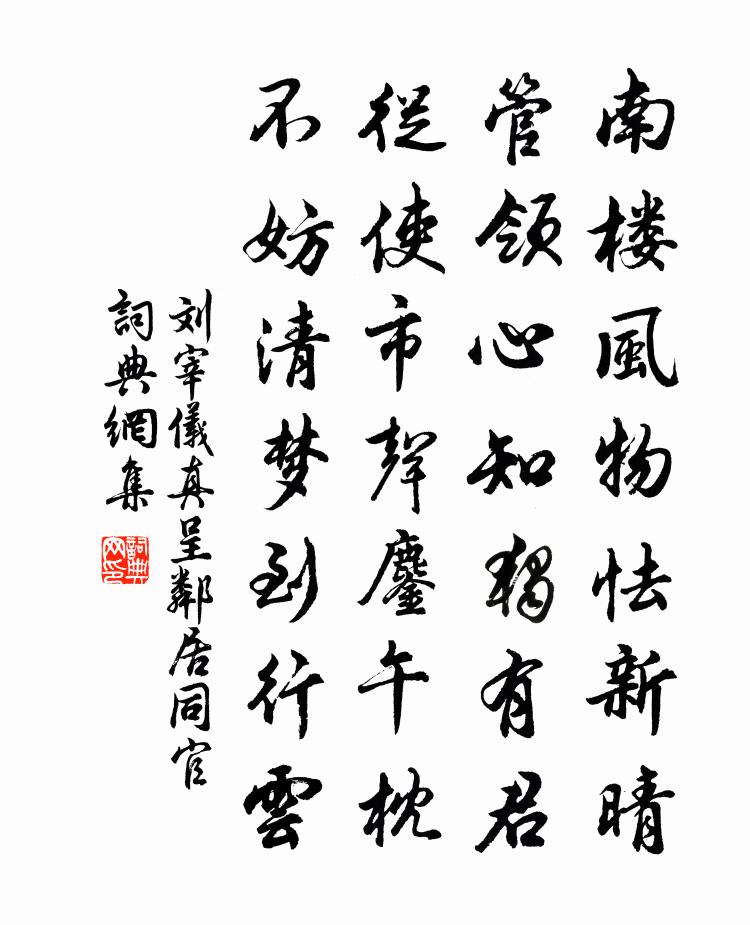 南楼風物怯新晴
管領心知獨有君
從使市聲鏖午枕
不妨清梦到行雲
刘宰儀真呈鄰居同官
詞典網集
詞典網印